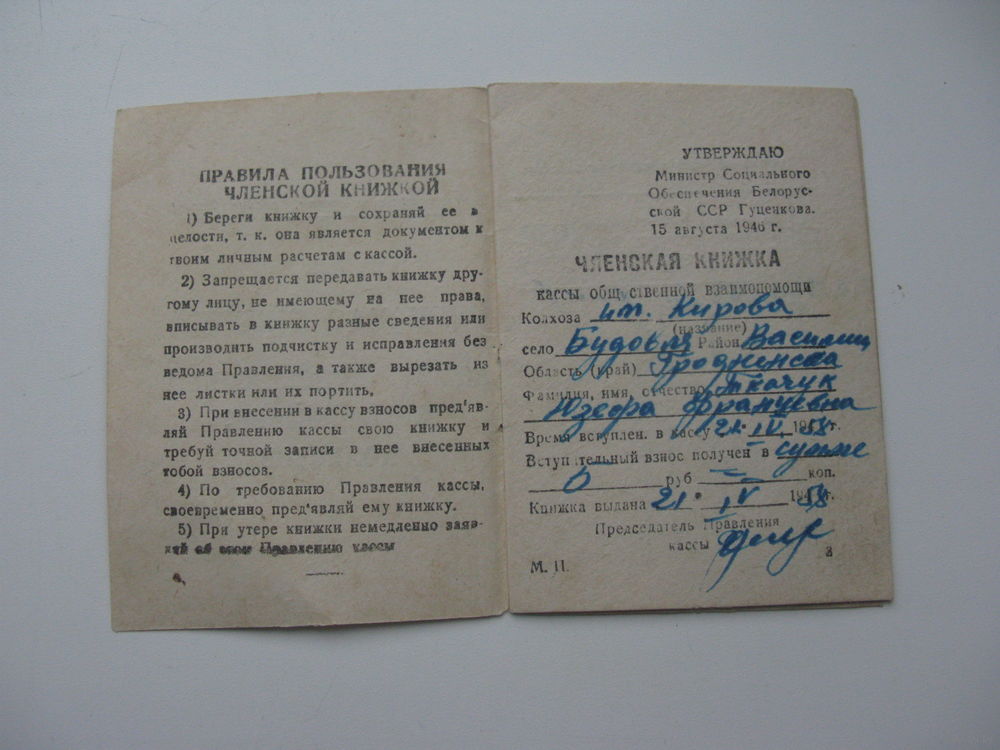 ПРАВИЛА ПОЛЬЗОВАНИЯ
ЧЛЕНСКОЙ КНИЖКОЙ
1) Береги книжку и сохраняй ее в
целости, т. к. она является документом к
твоим личным расчетам с кассой.
2) Запрещается передавать книжку дру-
гому лицу, не имеющему на нее права,
вписывать в книжку разные сведения или
производить подчистку и исправления без
ведома Правления, а также вырезать из
нее листки или их портить.
3) При внесении в кассу взносов пред'яв-
ляй Правлению кассы свою книжку и
требуй точной записи в нее внесенных
тобой взносов.
4) По требованию Правления кассы,
своевременно пред'являй ему книжку.
5) При утере книжки немедленно заяв-
ляй об этом Правлению кассы
УТВЕРЖДАЮ
Министр Социального
Обеспечения Белорус-
ской ССР Гуценкова.
15 августа 1946 г.
ЧЛЕНСКАЯ КНИЖКА
кассы общественной взаимопомощи
Колхоза им. Кирова
(название)
село Район Василиш
Область (край) Гродненска
Фамилия, имя, отчество Ткачук
Юзефа Францевна
Время вступлен. в кассу 21. IV 1958 г.
Вступительный взнос получен в сумме
руб коп.
Книжка выдана 21. IV 1958 г.
Председатель Правления
кассы
М. П.